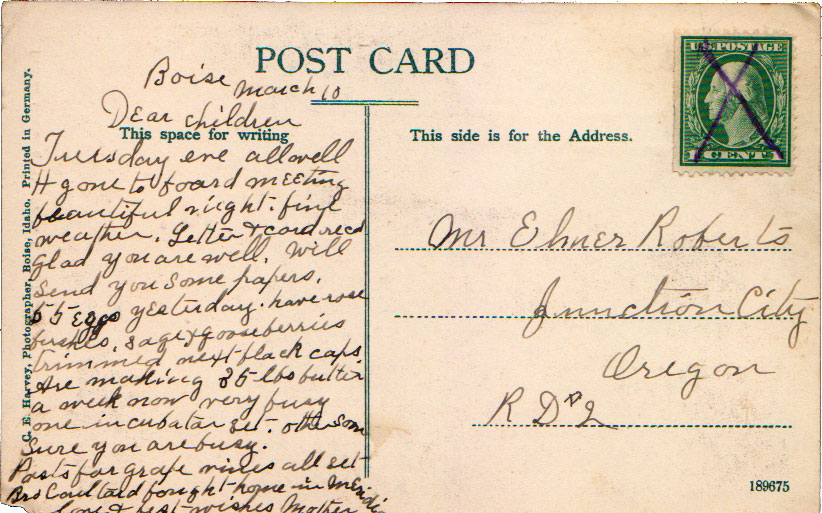 POST CARD
Boise
March 10
Dear children
This space for writing
Tuesday eve all well
H gone to board meeting
beautiful night. fine
weather. Letter & card recd
glad you are well. Will
send you some papers.
55 Eggs yesterday. have rose
bushes, sage & gooseberries
trimmed next black caps.
Are making 35 lbs butter
a week now very busy
one incubator set. other soon
Sure you are busy.
Posts for grape vines all set
Bro Coultard bought home in Meridia
love & best wishes Mother
This side is for the Address.
U.S. POSTAGE
CENTS
Mr Elmer Roberts
Junction City
Oregon
R D #2
189675
C. E. Harvey, Photographer, Boise, Idaho. Printed in Germany.